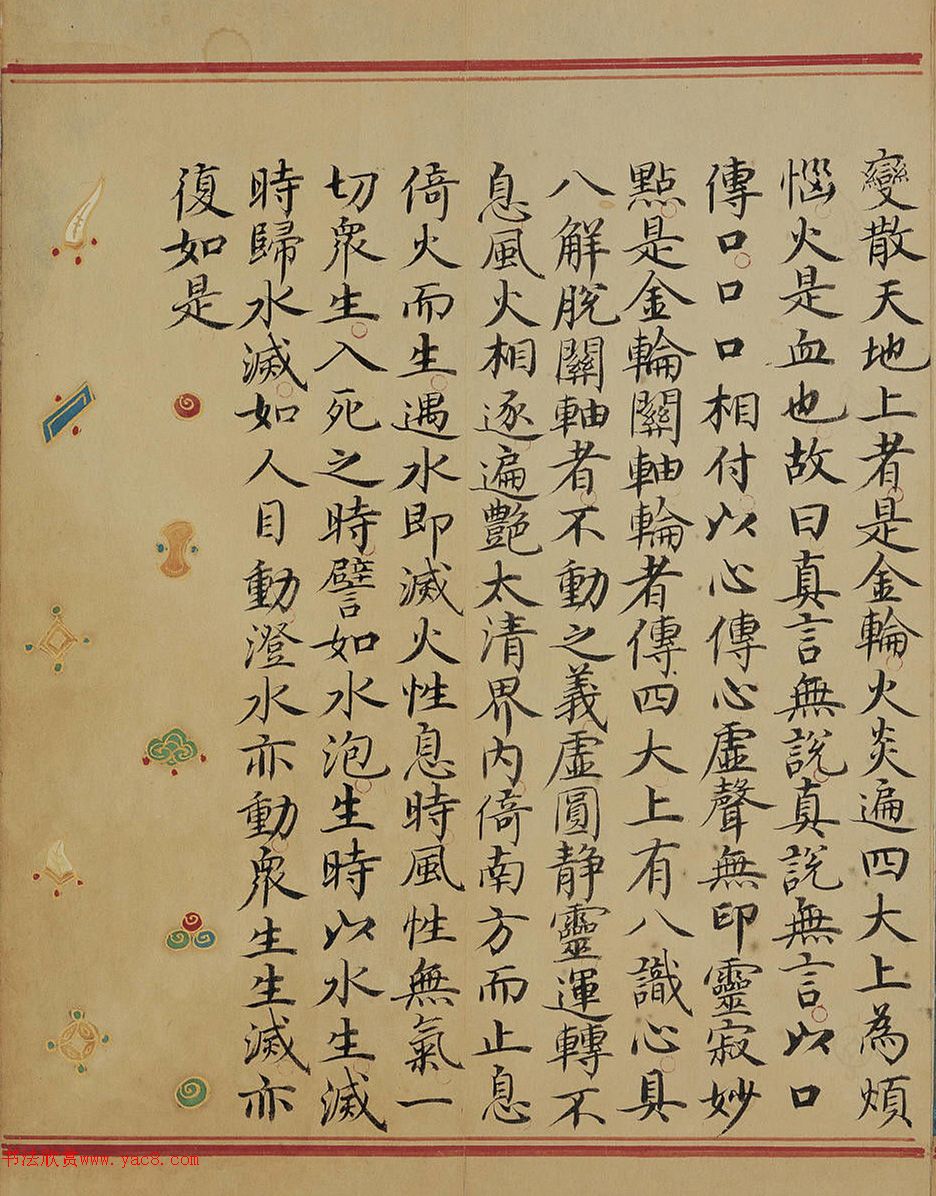 變散天地上者是金輪火炎遍四大上為煩
惱火是血也故曰真言無說真說無言以口
傳口口口相付以心傳心虛聲無印靈寂妙
點是金輪關軸輪者傳四大上有八識心具
八解脫關軸者不動之義虛圓靜靈運轉不
息風火相逐遍艷太清界內倚南方而止息
倚火而生遇水即滅火性息時風性無氣一
切衆生入死之時譬如水泡生時以水生滅
時歸水滅如人目動澄水亦動衆生生滅亦
復如是
书法欣赏www.yac8.com